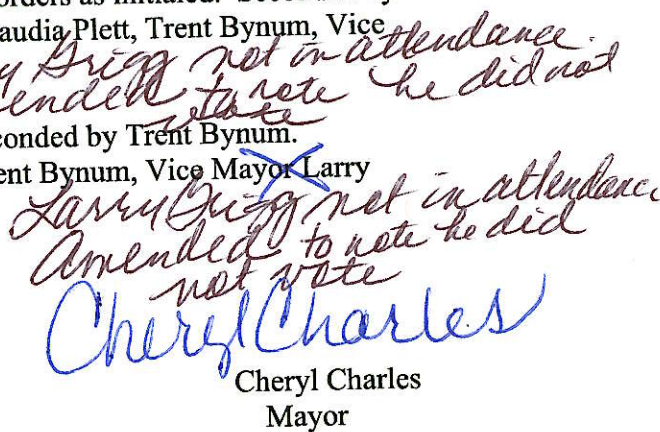 orders as initialed. Seconded by
audia Plett, Trent Bynum, Vice
y Grigg not in attendance.
ended to note he did not
vote
conded by Trent Bynum.
ent Bynum, Vice Mayor Larry
Larry Grigg not in attendance
Amended to note he did
not vote
Cheryl Charles
Cheryl Charles
Mayor